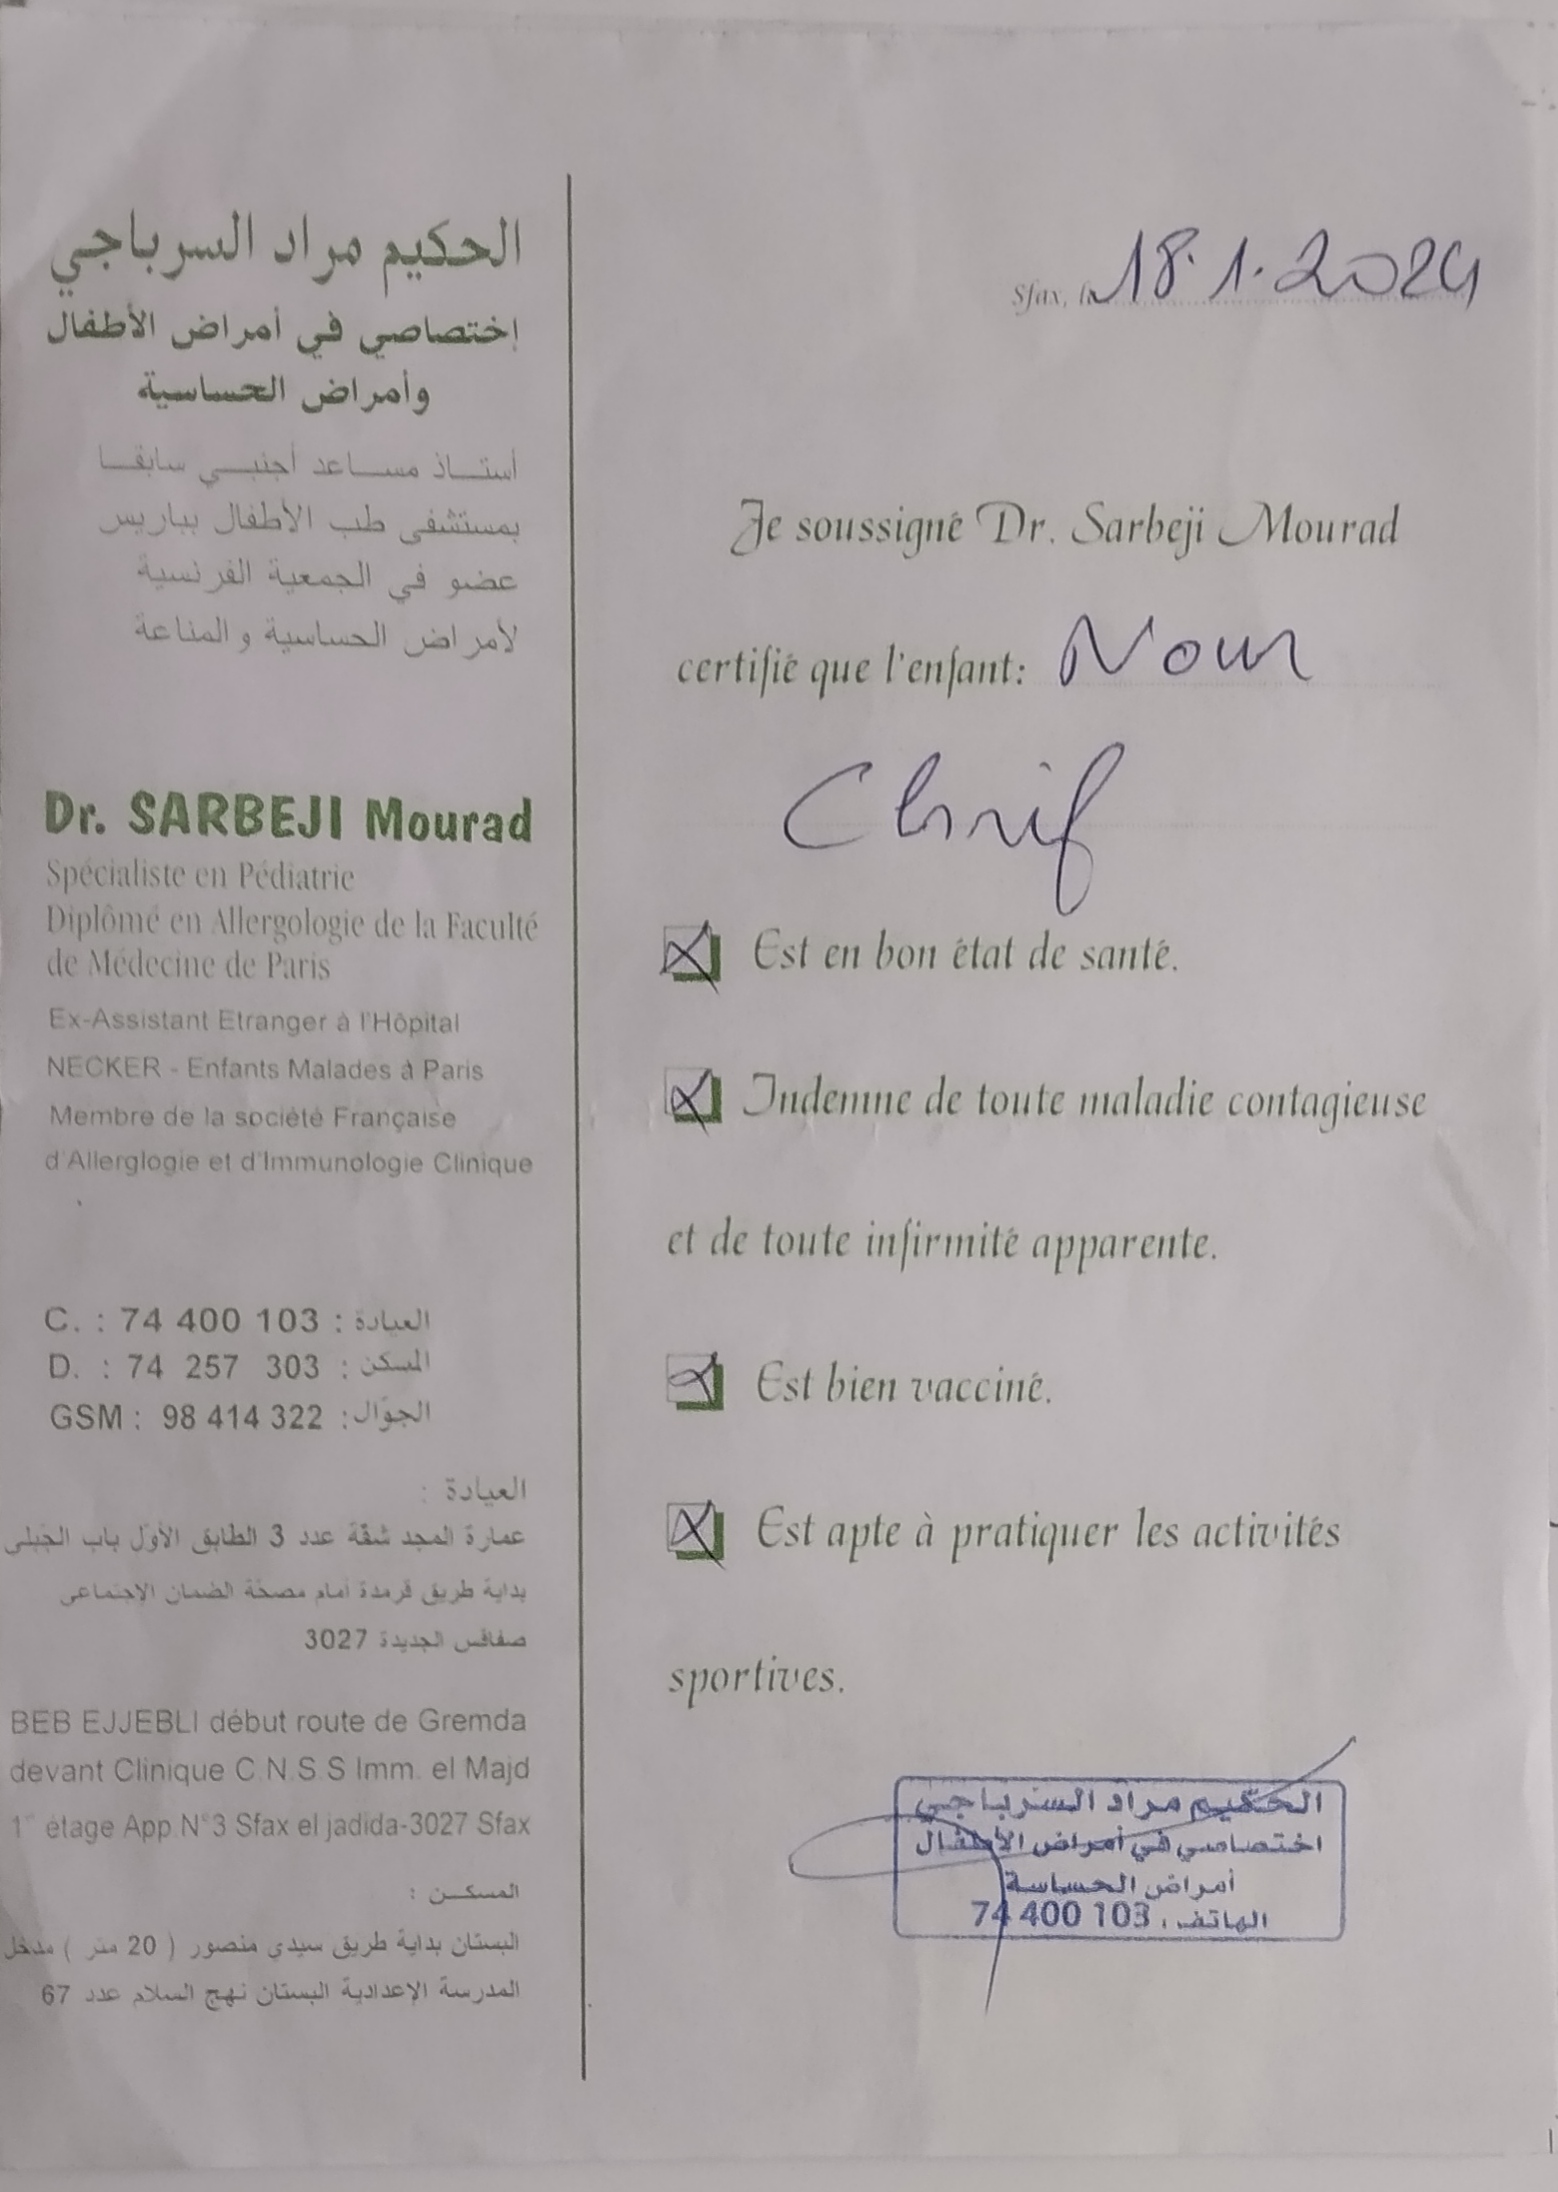 الحكيم مراد السرباجي
إختصاصي في أمراض الأطفال
وأمراض الحساسية
أستاذ مساعد أجنبي سابقا
بمستشفى طب الأطفال بباريس
عضو في الجمعية الفرنسية
لأمراض الحساسية والمناعة
Dr. SARBEJI Mourad
Spécialiste en Pédiatrie
Diplômé en Allergologie de la Faculté
de Médecine de Paris
Ex-Assistant Etranger à l'Hôpital
NECKER - Enfants Malades à Paris
Membre de la société Française
d'Allerglogie et d'Immunologie Clinique
C. : 74 400 103 : العيادة
D. : 74 257 303 : المسكن
GSM : 98 414 322 : الجوّال
العيادة :
عمارة المجد شقة عدد 3 الطابق الأوّل باب الجبلي
بداية طريق قرمدة أمام مصحّة الضمان الإجتماعي
صفاقس الجديدة 3027
BEB EJJEBLI début route de Gremda
devant Clinique C.N.S.S Imm. el Majd
1er étage App.N°3 Sfax el jadida-3027 Sfax
المسكن :
البستان بداية طريق سيدي منصور ( 20 متر ) مدخل
المدرسة الإعدادية البستان نهج السلام عدد 67
Sfax, le 18.1.2024
Je soussigné Dr. Sarbeji Mourad
certifié que l'enfant: Nour
Chrif
Est en bon état de santé.
Indemne de toute maladie contagieuse
et de toute infirmité apparente.
Est bien vacciné.
Est apte à pratiquer les activités
sportives.
الحكيم مراد السرباجي
اختصاصي في أمراض الأطفال
أمراض الحساسة
الهاتف. 74 400 103